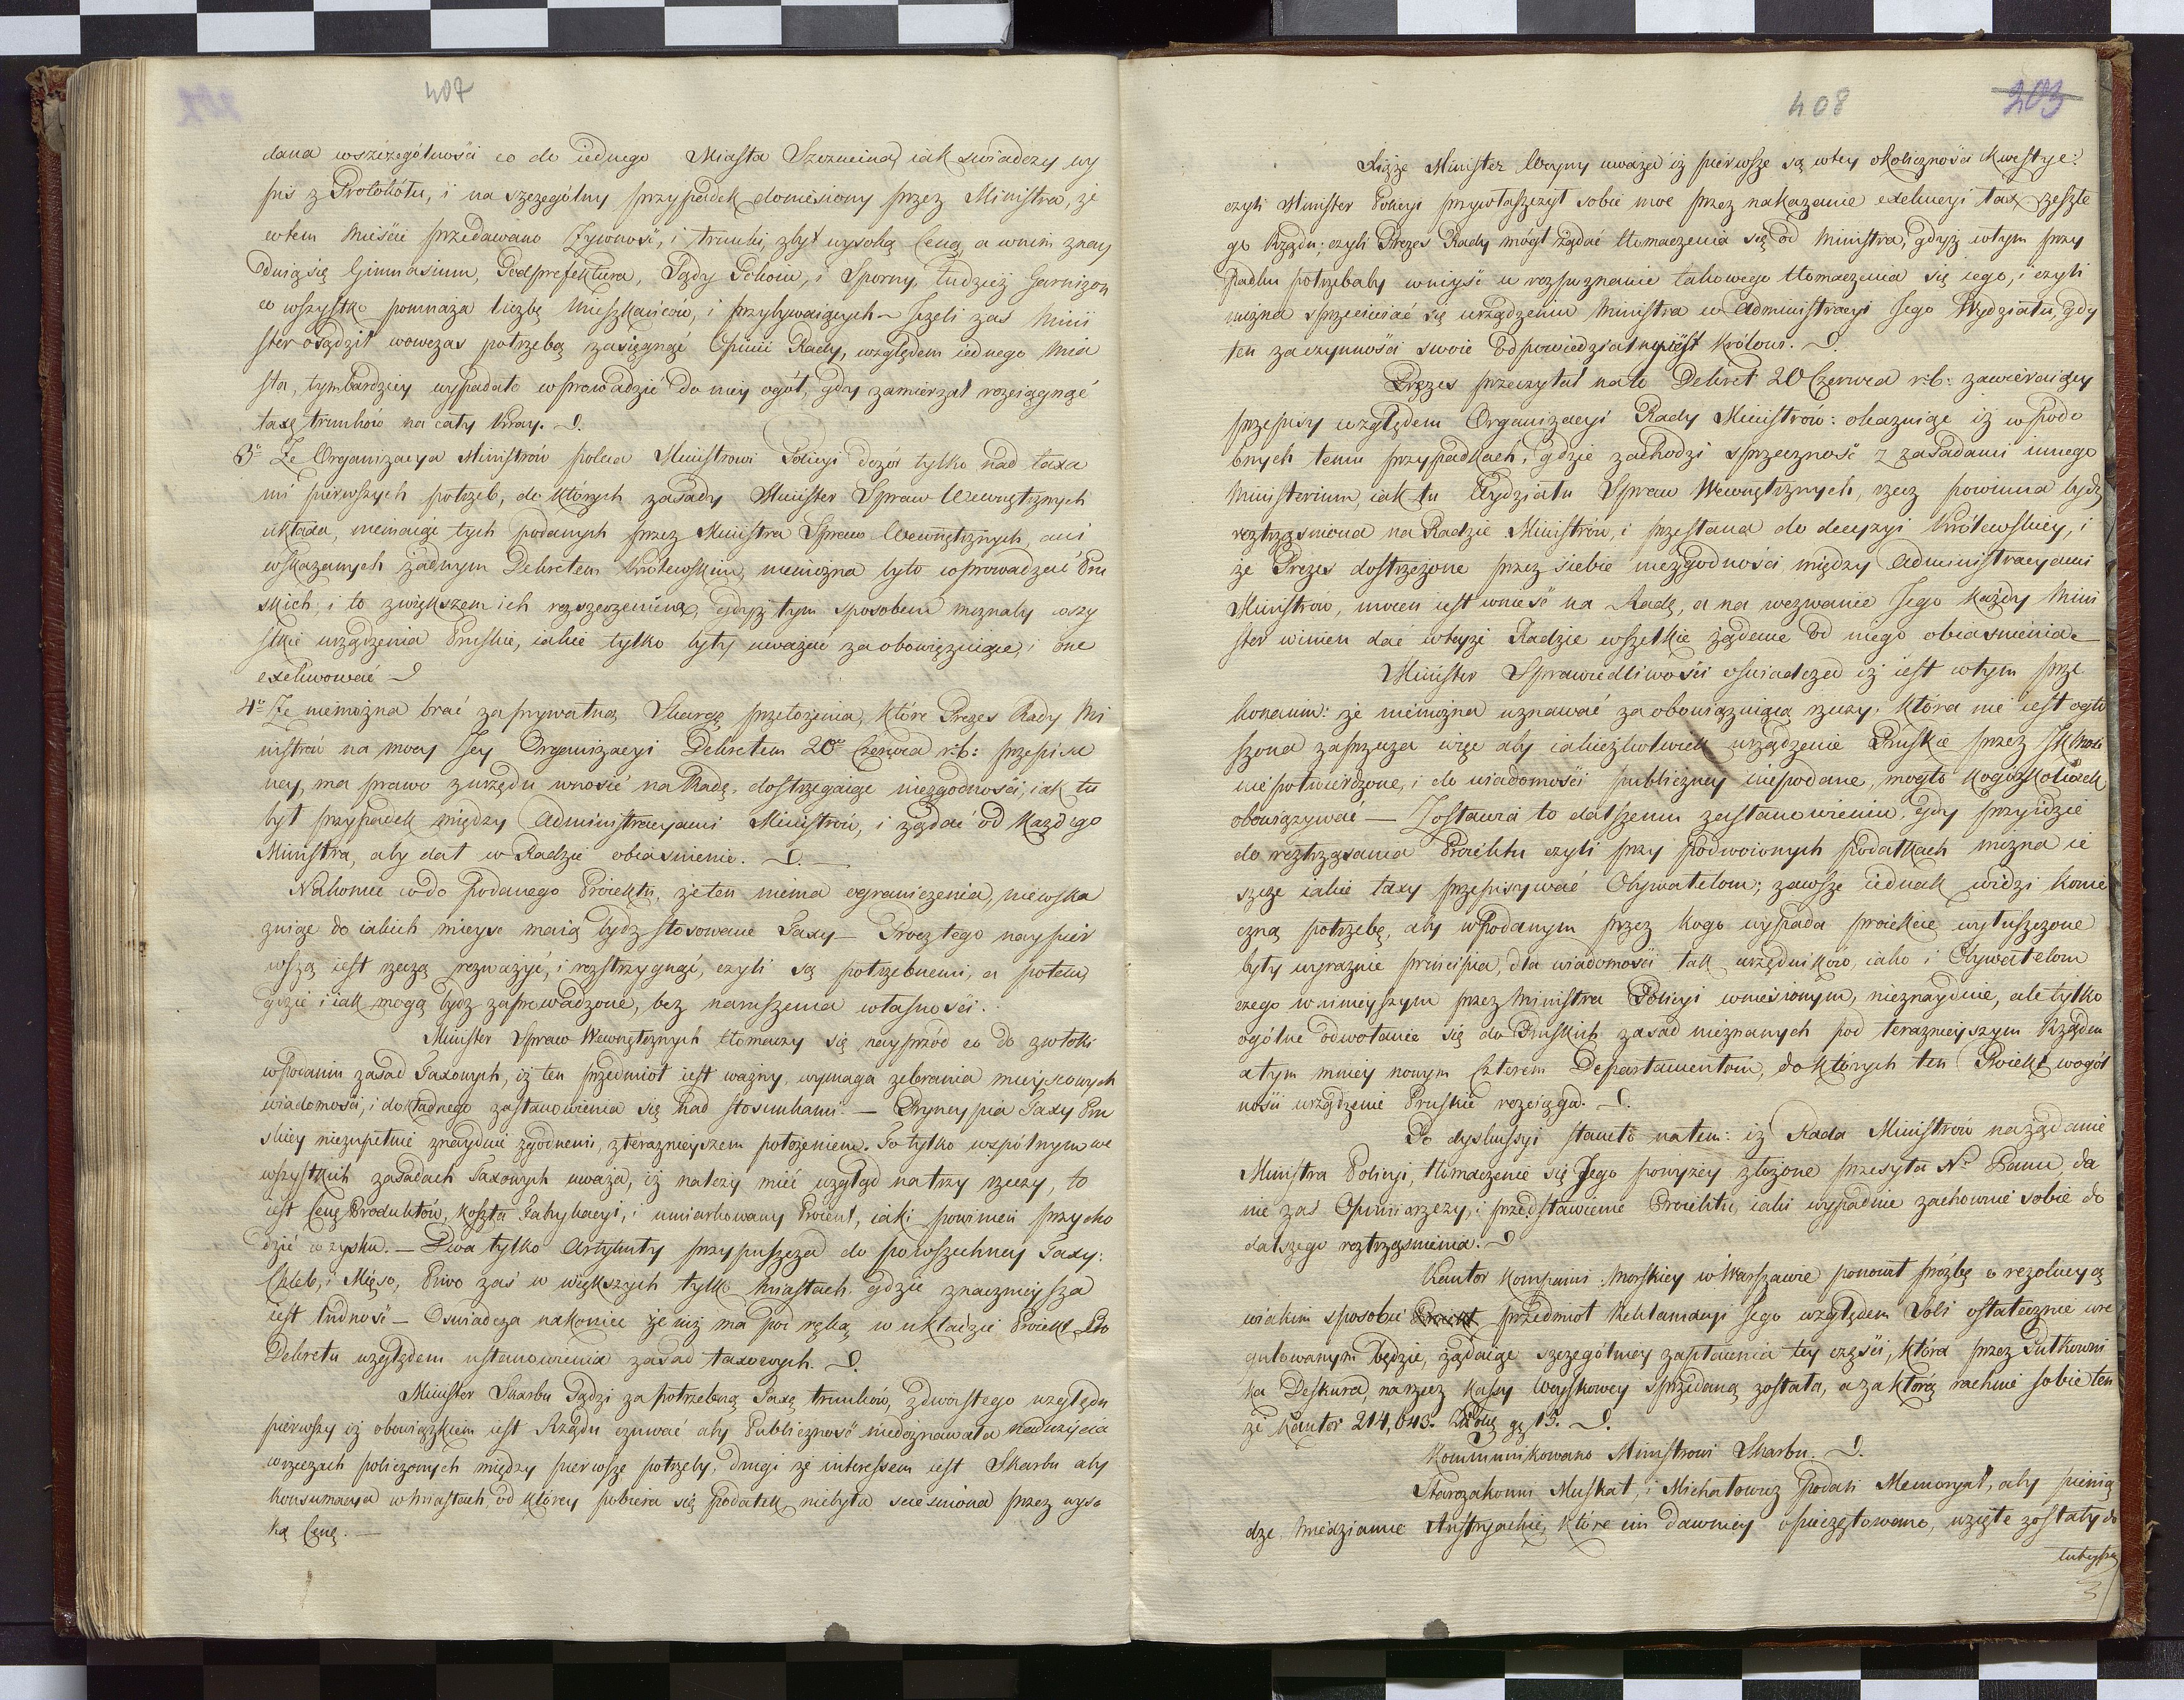 407
dana wszczególności co do iednego Miasta Szczucina, iak świadczy wy
pis z Protokółu, i na szczególny przypadek doniesiony przez Ministra, że
wtém Mieście przedawano Żywność, i trunki, zbyt wysoką Ceną, a wnim znay
duią się Gimnasium, Podprefektura, Sądy Pokoiu, i Sporny, tudzież Garnizon
co wszystko pomnaża liczbę Mieszkańców, i przybywaiących – Jeżeli zaś Mini
ster osądził wowczas potrzebą zasięgnąć Opinii Rady, względem iednego Mia
sta, tym bardziey wypadało wprowadzić do niey ogół, gdy zamierzał rozciągnąć
taxę trunków na cały Kray.
3° Że Organizacya Ministrów poleca Ministrowi Policyi dozór tylko nad taxa
mi pierwszych potrzeb, do których zasady Minister Spraw Wewnętrznych
układa, niemaiąc tych podanych przez Ministra Spraw Wewnętrznych, ani
wskazanych żadnym Dekretem Królewskim, niemożna było wprowadzać Pru
skich, i to zwiększem ich rozszerzeniem, gdyż tym sposobem możnaby wszy
stkie urządzenia Pruskie, iakie tylko były, uważać za obowięzuiące, i one
exekwować
4° Że niemożna brać za prywatną Skargę przełożenia, które Prezes Rady Mi
nistrów na mocy Jey Organizacyi Dekretem 20° Czerwca r: b: przepisa
ney, ma prawo zurzędu wnosić na Radę, dostrzegaiąc niezgodności, iak tu
był przypadek między Administracyami Ministrów, i żądać od każdego
Ministra, aby dał w Radzie obiaśnienie.
Nakoniec codo podanego Proiektu, że ten niema ograniczenia, niewska
zuiąc do iakich mieysc maią bydz stosowane Taxy – Procz tego naypier
wszą iest rzeczą rozważyć, i rozstrzygnąć, czyli są potrzebnemi, a potem,
gdzie i iak mogą bydz zaprowadzone, bez naruszenia własności.
Minister Spraw Wewnętrznych tłomaczy się nayprzód co do zwłoki
wpodaniu zasad Taxowych, iż ten przedmiot iest ważny, wymaga zebrania mieyscowych
wiadomości, i dokładnego zastanowienia się nad stosunkami. – Pryncypia Taxy Pru
skiey niezupełnie znayduie zgodnemi, zteraznieyszem położeniem. To tylko wspólnym we
wszystkich zasadach Taxowych uważa, iż należy mieć wzgląd na trzy rzeczy, to
iest Cenę Produktów, koszta Fabrykacyi, i umiarkowany Procent, iaki powinien przycho
dzić wzysku. – Dwa tylko Artykuły przypuszcza do powszechney Taxy:
Chleb, i Mięso, Piwo zaś w większych tylko Miastach gdzie znacznieysza
iest ludność – Oświadcza nakoniec że iuż ma pod ręką w układzie Proiekt do
Dekretu względem ustanowienia zasad taxowych.
Minister Skarbu Sądzi za potrzebną Taxę trunków, zdwoistego względu
pierwszy iż obowiązkiem iest Rządu czuwać aby Publiczność niedoznawała nadużycia
wrzeczach policzonych między pierwsze potrzeby, drugi że interessem iest Skarbu aby
konsumacya w Miastach, od którey pobiera się podatek niebyła scieśniona przez wyso
ką Cenę. –
408 203
Xiąże Minister Woyny uważa iż pierwsze są wtey okoliczności Kwestye:
czyli Minister Policyi przywłaszczył sobie moc przez nakazanie exekucyi tax zeszłe
go Rządu; czyli Prezes Rady mógł żądać tłomaczenia się od Ministra, gdyż wtym przy
padku potrzebaby wniyść w rozpoznanie takowego tłomaczenia się iego, i czyli
można sprzeciwiać się urządzeniu Ministra w Administracyi Jego Wydziału, gdy
ten za czynności swoie Odpowiedzialnym iest Królowi.
Prezes przeczytał na to Dekret 20 Czerwca r: b: zawieraiący
przepisy względem Organizacyi Rady Ministrów: okazuiąc iż wpodo
bnych temu przypadkach, gdzie zachodzi sprzeczność z zasadami innego
Ministerium, iak tu Wydziału Spraw Wewnętrznych, rzecz powinna bydz
roztrząśniona na Radzie Ministrów, i przesłana do decyzyi Królewskiey, i
że Prezes dostrzeżone przez siebie niezgodności między Administracyami
Ministrów, mocen iest wnieść na Radę, a na wezwanie Jego każdy Mini
ster winien dać wteyże Radzie wszelkie żądane Od niego obiaśnienia –
Minister Sprawiedliwości oświadcza iż iest wtym prze
konaniu: że niemożna uznawać za obowiązuiącą rzeczy, która nie iest ogło
szona zaprzecza więc aby iakieżkolwiek urządzenie Pruskie przez JKMość
nie potwierdzone, i do wiadomości publiczney niepodane, mogło kogożkolwiek
obowiązywać – Zostawia to dalszemu zastanowieniu, gdy przyidzie
do roztrząsania Proiektu czyli przy podwoionych podatkach można ie
szcze iakie taxy przepisywać Obywatelom; zawsze iednak widzi konie
czną potrzebę, aby wpodanym przez kogo wypada proiekcie wyłuszczone
były wyraznie principia, dla wiadomości tak urzędników, iako i Obywatelom
czego w ninieyszym przez Ministra Policyi wniesionym, nieznayduie, ale tylko
ogólne odwołanie się do Pruskich zasad nieznanych pod teraznieyszym Rządem
a tym mniey nowym Czterem Departamentom, do których ten Proiekt wogól
ności urządzenie Pruskie rozciąga.
Po dyskussyi staneło na tem: iż Rada Ministrów na żądanie
Ministra Policyi, tłomaczenie się Jego powyżey złożone przesyła N° Panu, da
nie zaś Opinii wrzeczy, i przedstawienie Proiektu, iaki wypadnie zachowuie sobie do
dalszego roztrząśnienia.
Kantor kompanii Morskiey w Warszawie ponowił prośbę o rezolucyą
wiakim sposobie przedmiot Reklamacyi Jego względem Soli ostatecznie ure
gulowanym będzie, żądaiąc szczególniey zapłacenia tey części, która przez Pułkowni
ka Deskura, narzecz kassy Woyskowey sprzedaną została, a za którą rachuie sobie ten
że Kantor 214,643. gg 15.
Kommunikowano Ministrowi Skarbu.
Starozakonni Muskat, i Michałowicz podali Memoryał, aby pienią
dze Miedzianne Austryackie, które im dawniey opieczętowano, wzięte zostały do